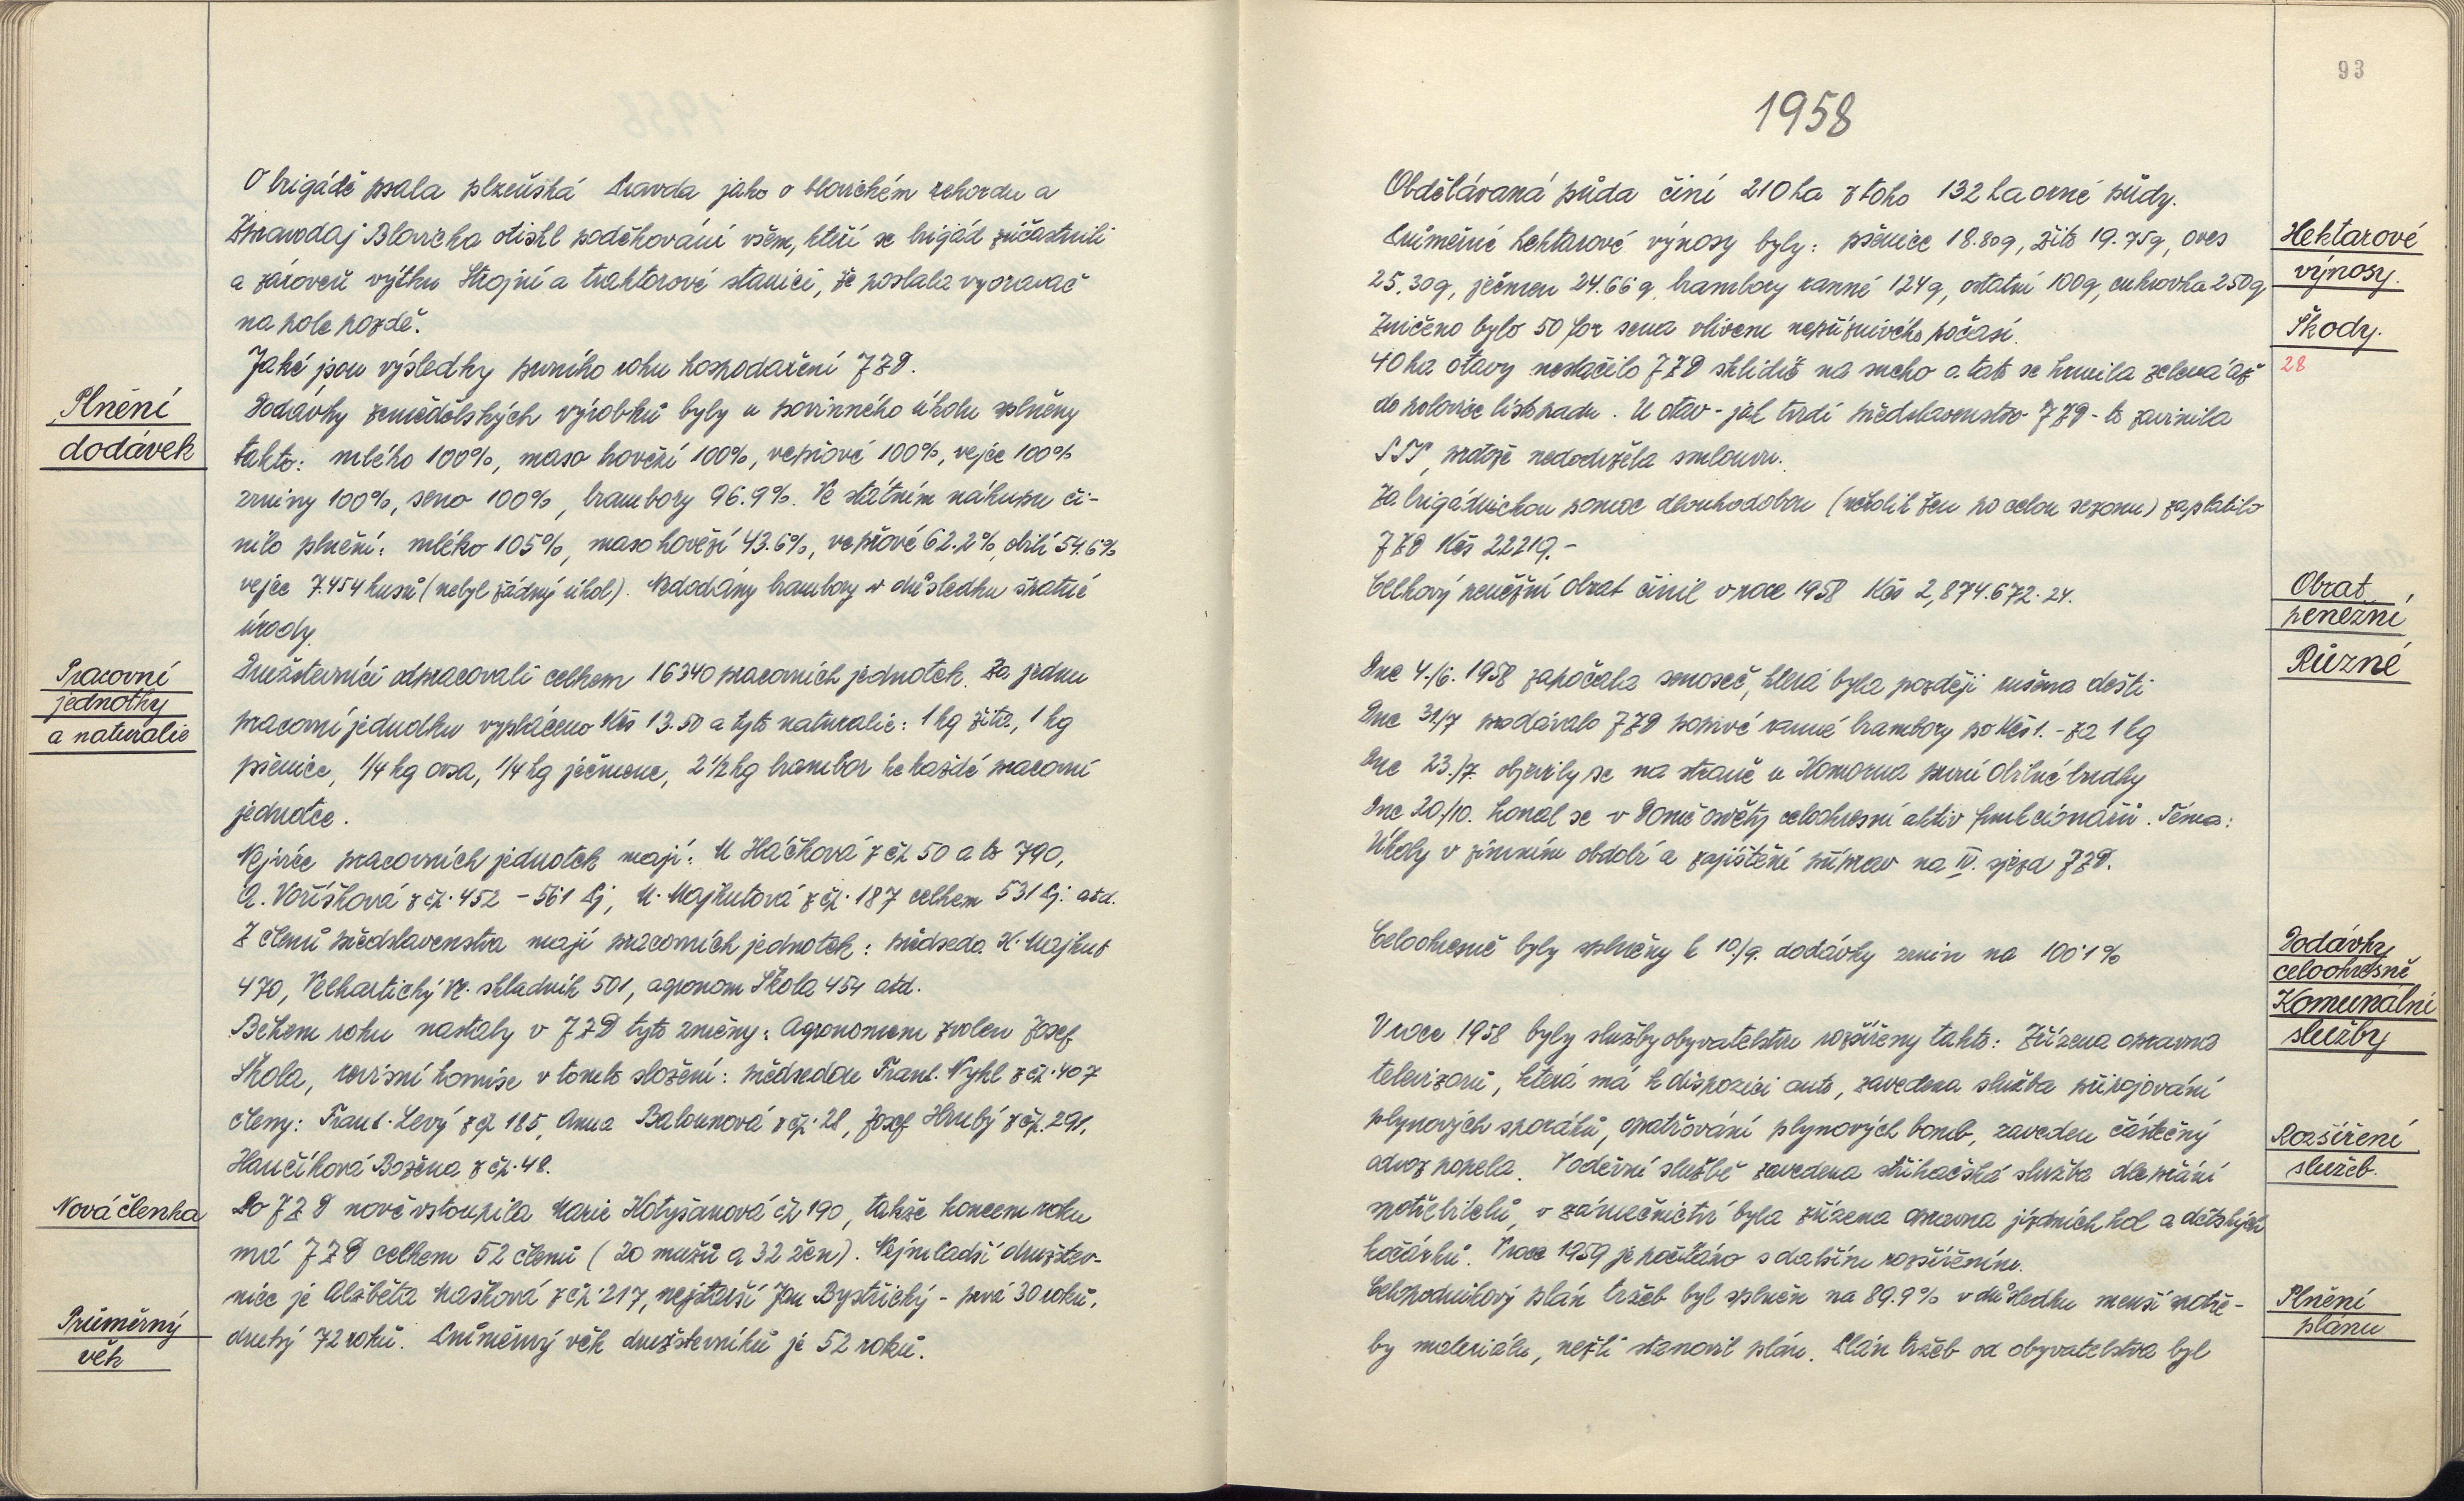 O brigádě psala plzeňská Pravda jako o blovickém rekordu a
Zpravodaj Blovicka otiskl poděkování všem, kteří se brigád zúčastnili
a zároveň výtku Strojní a traktorové stanici, že poslala vyoravač
na pole pozdě.
Jaké jsou výsledky prvního roku hospodaření JZD.
Plnění
dodávek
Dodávky zemědělských výrobků byly u povinného úkolu splněny
takto: mléko 100%, maso hovězí 100%, vepřové 100%, vejce 100%
zrniny 100%, seno 100%, brambory 96.9%. Ve státním nákupu či-
nilo plnění: mléko 105%, maso hovězí 43.6%, vepřové 62.2%, obilí 54.6%
vejce 7.454 kusů (nebyl žádný úkol). Nedodány brambory v důsledku špatné
úrody.
Pracovní
jednotky
a naturalie
Družstevníci odpracovali celkem 16340 pracovních jednotek. Za jednu
pracovní jednotku vypláceno Kčs 13.50 a tyto naturalie: 1 kg žita, 1 kg
pšenice, 1/4 kg ovsa, 1/4 kg ječmene, 2 1/2 kg brambor ke každé pracovní
jednotce.
Nejvíce pracovních jednotek mají: M Háčková z čp 50 a to 790,
A. Voříšková z čp. 452 - 561 pj, M. Majhutová z čp. 187 celkem 531 pj. atd.
Z členů představenstva mají pracovních jednotek: předseda K. Majhut
470, Velhartický V. skladník 501, agronom Škola 454 atd.
Během roku nastaly v JZD tyto změny: Agronomem zvolen Josef
Škola, revisní komise v tomto složení: předsedou Frant. Vykl z čp. 407
členy: Frant. Levý z čp 185, Anna Balounová z čp. 28, Josef Hrubý z čp. 291,
Hančíková Božena z čp. 48.
Nová členka
Do JZD nově vstoupila Marie Kotyšanová čp 190, takže koncem roku
má JZD celkem 52 členů (20 mužů a 32 žen). Nejmladší družstev-
nice je Alžběta Mašková z čp. 217, nejstarší Jan Bystřický - prvá 30 roků,
Průměrný
věk
druhý 72 roků. Průměrný věk družstevníků je 52 roků.
93
1958
Obdělávaná půda činí 210 ha z toho 132 ha orné půdy.
Hektarové
výnosy.
Průměrné hektarové výnosy byly: pšenice 18.80q, žito 19.75q, oves
25.30q, ječmen 24.66 q, brambory ranné 124q, ostatní 100q, cukrovka 250q
Škody.
28
Zničeno bylo 50 for sena vlivem nepříznivého počasí.
40 ha otavy nestačilo JZD sklidit na sucho a tato se krmila zelená až
do polovice listopadu. U otav - jak tvrdí představenstvo JZD - to zavinila
STS, protože nedodržela smlouvu.
Za brigádnickou pomoc dlouhodobou (několik žen po celou sezonu) zaplatilo
JZD Kčs 22219.-
Obrat
peněžní
Celkový peněžní obrat činil v roce 1958 Kčs 2,874.672.24.
Různé
Dne 4./6. 1958 započala senoseč, která byla později rušena dešti
Dne 31/7 prodávalo JZD poprvé ranné brambory po Kčs 1.- za 1 kg
Dne 23./7. objevily se na stráni u Komorna první obilné brudky
Dne 20./10. konal se v Domě osvěty celookresní aktiv funkcionářů. Téma:
Úkoly v zimním období a zajištění příprav na IV. sjezd JZD.
Dodávky
celookresně
Celookresně byly splněny k 10./9. dodávky zrnin na 100.1%
Komunální
služby
V roce 1958 byly služby obyvatelstvu rozšířeny takto: Zřízena opravna
televizorů, která má k dispozici auto, zavedena služba připojování
Rozšíření
služeb.
plynových sporáků, opatřování plynových bomb, zaveden částečný
odvoz popela. V oděvní službě zavedena střihačská služba dle přání
spotřebitelů, v zámečnictví byla zřízena opravna jízdních kol a dětských
kočárků. V roce 1959 je počítáno s dalším rozšířením.
Plnění
plánu
Celopodnikový plán tržeb byl splněn na 89.9% v důsledku menší potře-
by materiálu, nežli stanovil plán. Plán tržeb od obyvatelstva byl